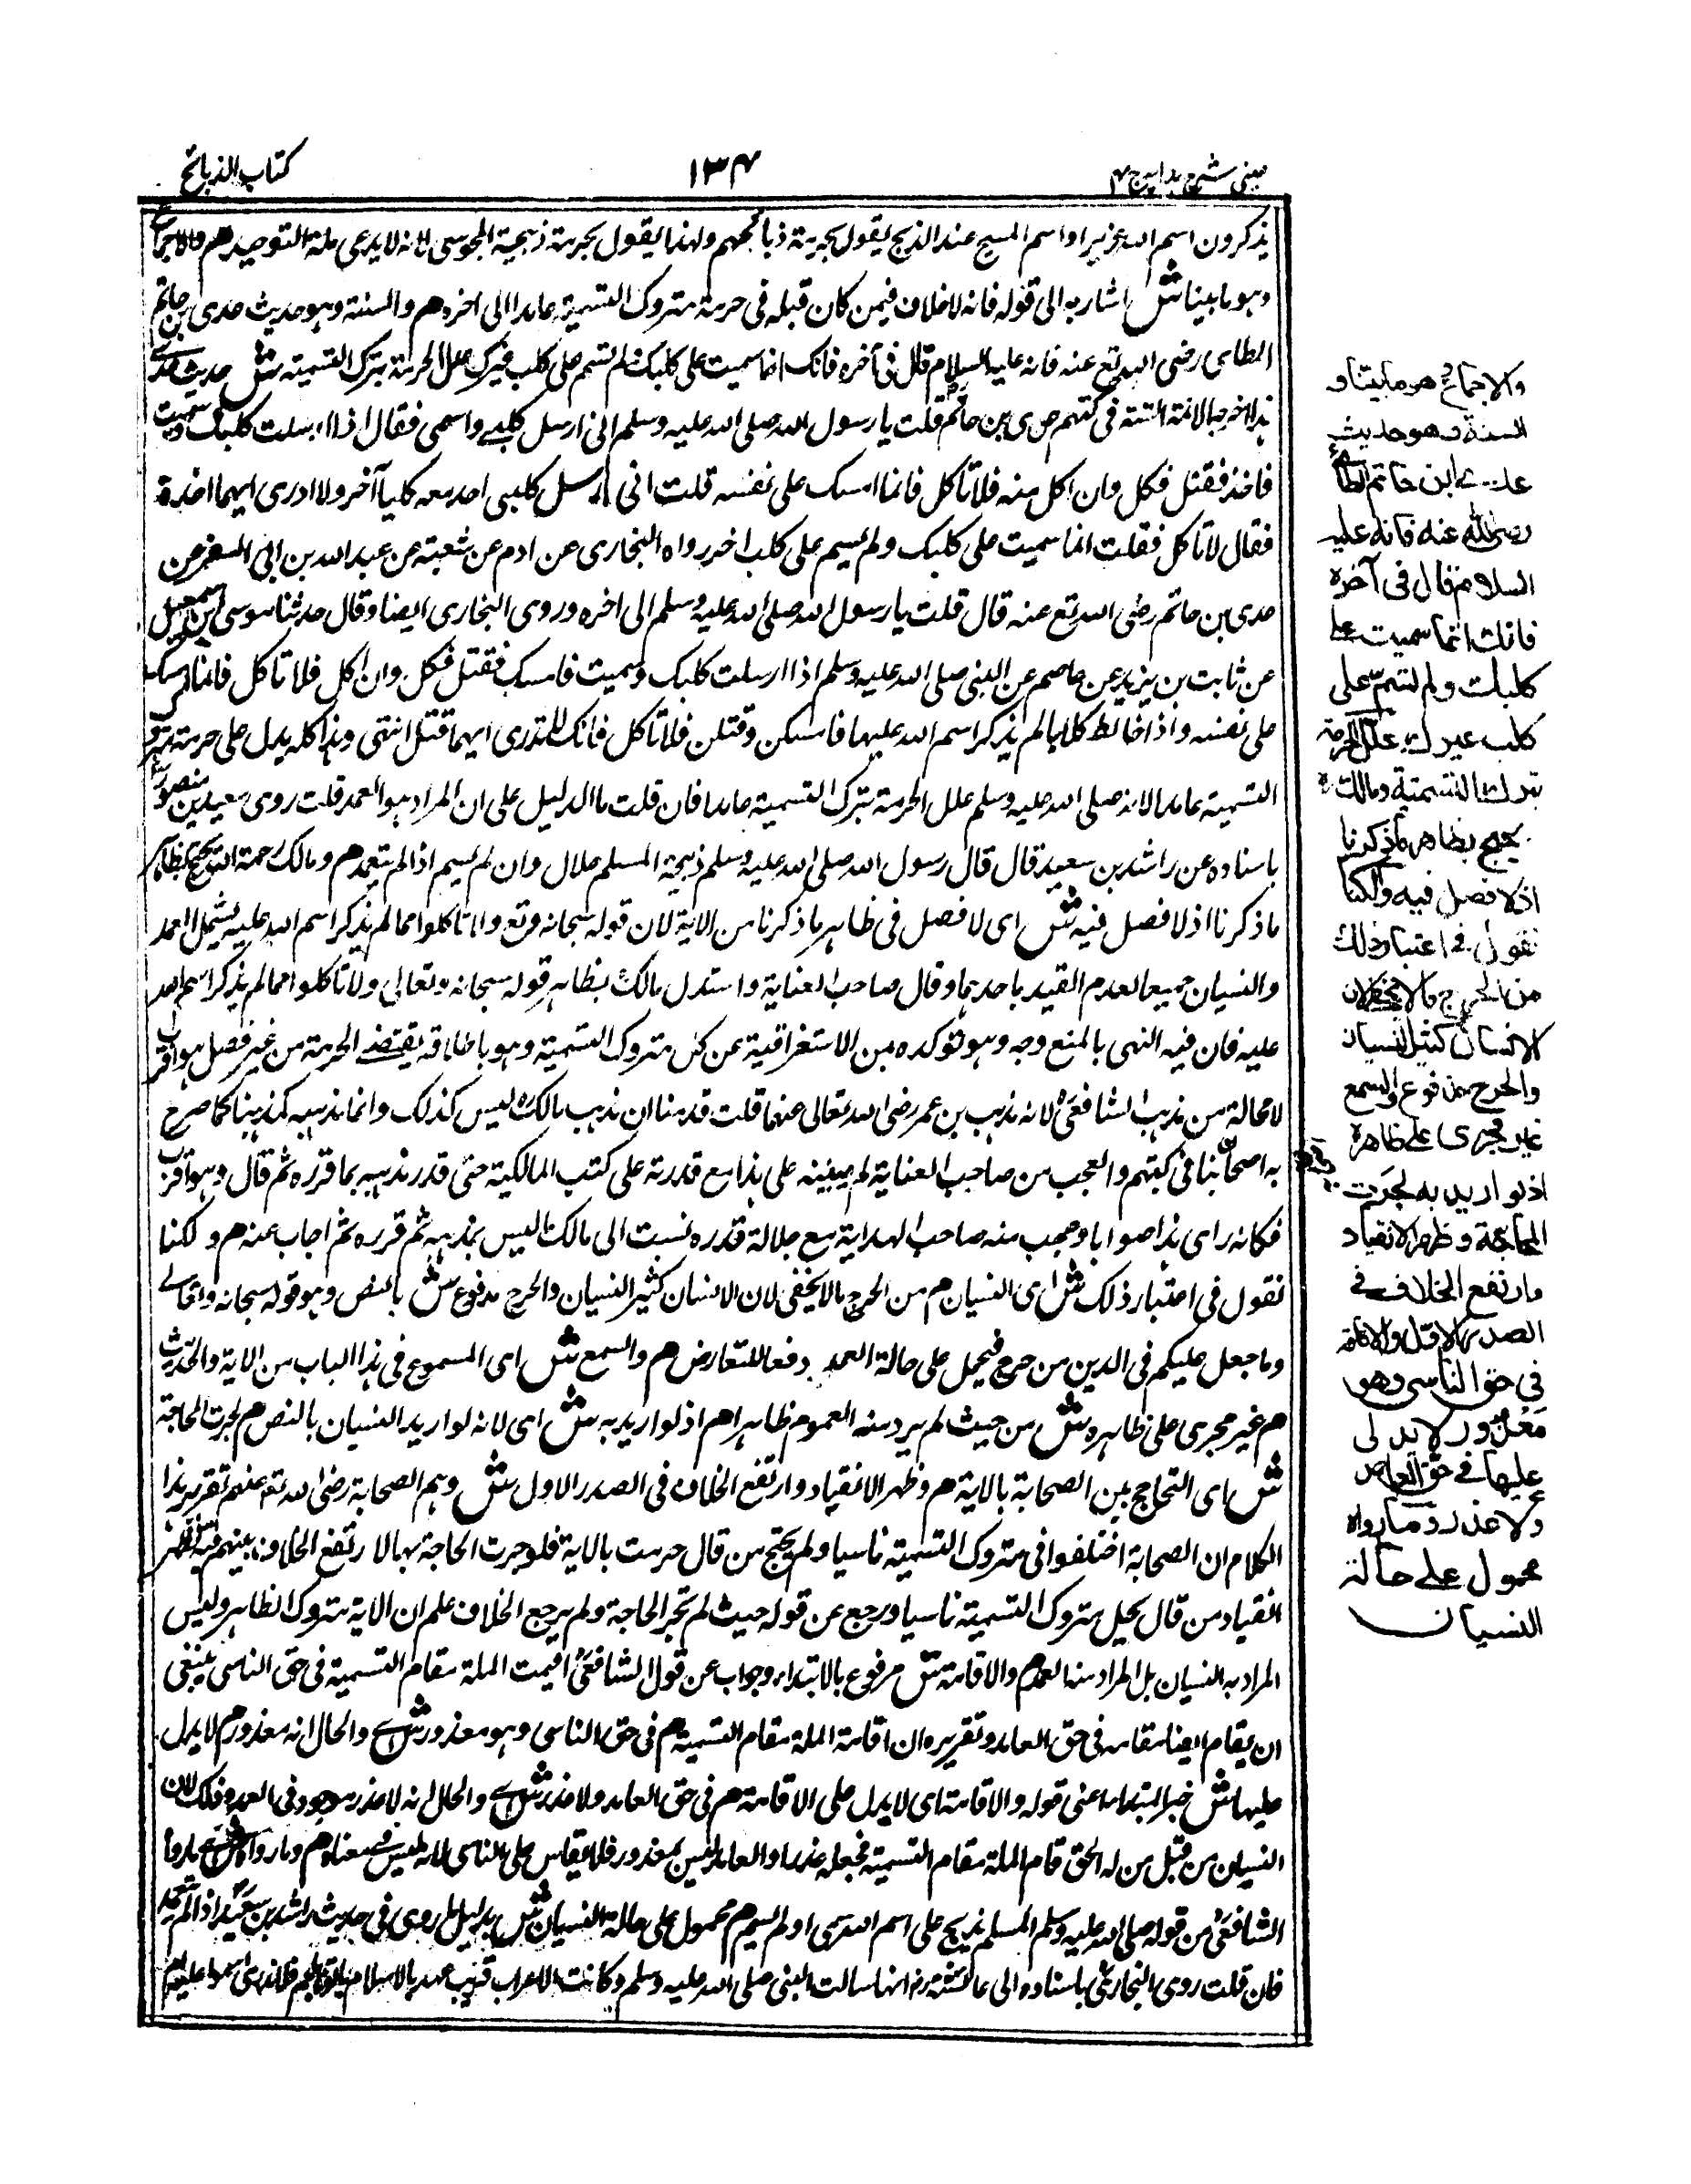 عینی شرح ہدایہ ج ۴
۱۳۴
کتاب الذبائح
یذکرون اسم اللہ عزیرا و اسم المسیح عند الذبح یقول بحرمۃ ذبائحهم ولهذا یقول بحرمۃ ذبیحۃ المجوسی لانه لا یدعی ملۃ التوحید هم والاجماع
وهو ما بینا ش اشار به الی قوله فانه لا خلاف فیمن کان قبله فی حرمۃ متروک التسمیۃ عامدا الی اخره هم والسنۃ وهو حدیث عدی بن حاتم
الطائی رضی اللہ تع عنه فانه علیه السلام قال فی آخره فانک انما سمیت علی کلبک ولم تسم علی کلب غیرک علل الحرمۃ بترک التسمیۃ ش حدیث عدی
هذا اخرجه الائمۃ الستۃ فی کتبهم عن عدی بن حاتم قلت یا رسول اللہ صلی اللہ علیه وسلم انی ارسل کلبی واسمی فقال اذا ارسلت کلبک وسمیت
فاخذ فقتل فکل وان اکل منه فلا تأکل فانما امسک علی نفسه قلت انی ارسل کلبی اجد معه کلبا آخر ولا ادری ایهما اخذه
فقال لا تأکل فقلت انما سمیت علی کلبک ولم یسم علی کلب اخر رواه البخاری عن ادم عن شعبۃ عن عبد اللہ بن ابی السفر عن
عدی بن حاتم رضی اللہ تع عنه قال قلت یا رسول اللہ صلی اللہ علیه وسلم الی اخره وروی البخاری ایضا وقال حدثنا موسی بن اسمعیل
عن ثابت بن یزید عن عاصم عن النبی صلی اللہ علیه وسلم اذا ارسلت کلبک وسمیت فامسک فقتل فکل وان اکل فلا تأکل فانما امسک
علی نفسه واذا خالط کلابا لم یذکر اسم اللہ علیها فامسکن وقتلن فلا تأکل فانک لا تدری ایهما قتل انتهی وهذا کله یدل علی حرمۃ متروک
التسمیۃ عامدا لانه صلی اللہ علیه وسلم علل الحرمۃ بترک التسمیۃ عامدا فان قلت ما الدلیل علی ان المراد هو العمد قلت روی سعید بن منصور
باسناده عن راشد بن سعید قال قال رسول اللہ صلی اللہ علیه وسلم ذبیحۃ المسلم حلال وان لم یسم اذا لم یتعمد هم ومالک رحمۃ اللہ یحتج بظاهر
ما ذکرنا اذ لا فصل فیه ش ای لا فصل فی ظاهر ما ذکرنا من الایۃ لان قوله سبحانه وتع ولا تأکلوا مما لم یذکر اسم اللہ علیه یشمل العمد
والنسیان جمیعا لعدم القید باحدهما وقال صاحب العنایۃ واستدل مالک بظاهر قوله سبحانه وتعالی ولا تأکلوا مما لم یذکر اسم اللہ
علیه فان فیه النهی بالمنع وجه وهو توکده بمن الاستغراقیۃ عن کل متروک التسمیۃ وهو باطلاقه یقتضی الحرمۃ من غیر فصل هو اقرب
لا محالۃ من مذهب الشافعی لانه مذهب بن عمر رضی اللہ تعالی عنهما قلت قدمنا ان مذهب مالک لیس کذلک وانما مذهبه کمذهبنا کما صرح
به اصحابنا فی کتبهم والعجب من صاحب العنایۃ لم یبینه علی هذا مع قدرته علی کتب المالکیۃ حتی قدر مذهبه بما قرره ثم قال وهو اقرب
فکانه رای هذا صوابا وعجب منه صاحب الهدایۃ مع جلالۃ قدره نسبت الی مالک ما لیس بمذهبه ثم قرره ثم اجاب عنه هم ولکنا
نقول فی اعتبار ذلک ش ای النسیان هم من الحرج ما لا یخفی لان الانسان کثیر النسیان والحرج مدفوع ش بالنص وهو قوله سبحانه وتعالی
وما جعل علیکم فی الدین من حرج فیحمل علی حالۃ العمد دفعا للتعارض هم والسمع ش ای المسموع فی هذا الباب من الایۃ والحدیث
هم غیر مجری علی ظاهره ش من حیث لم یرد منه العموم ظاهرا هم اذ لو ارید به ش ای لانه لو ارید النسیان بالنص هم لجرت المحاجۃ
ش ای التحاجج بین الصحابۃ بالایۃ هم وظهر الانقیاد وارتفع الخلاف فی الصدر الاول ش وهم الصحابۃ رضی اللہ تع عنهم تقریر هذا
الکلام ان الصحابۃ اختلفوا فی متروک التسمیۃ ناسیا ولم یحتج من قال حرمت بالایۃ فلو جرت الحاجۃ بها لارتفع الخلاف بینهم
انقیاد من قال یحل متروک التسمیۃ ناسیا ورجع عن قوله حیث لم تجر الحاجۃ ولم یرجع الخلاف علم ان الایۃ متروک الظاهر ولیس
المراد به النسیان بل المراد منه العمد هم والاقامۃ ش مرفوع بالابتداء وجواب عن قول الشافعی اقیمت الملۃ مقام التسمیۃ فی حق الناسی ینبغی
ان یقام ایضا مقامه فی حق العامد وتقریره ان اقامۃ الملۃ مقام التسمیۃ هم فی حق الناسی وهو معذور ش ای والحال انه معذور هم لا یدل
علیها ش خبر المبتدا اعنی قوله والاقامۃ ای لا یدل علی الاقامۃ هم فی حق العامد ولا عذر ش ای والحال انه لا عذر موجود فی العمد وذلک لان
النسیان من قبل من له الحق قام الملۃ مقام التسمیۃ فجعله عذرا والعامد لیس بمعذور فلا یقاس علی الناسی لانه لیس فی معناه هم وما رواه ش ای ما رواه
الشافعی من قوله صلی اللہ علیه وسلم المسلم یذبح علی اسم اللہ سمی او لم یسم هم محمول علی حالۃ النسیان ش بدلیل ما روی فی حدیث راشد بن سعید اذا لم یتعمد
فان قلت روی البخاری باسناده الی عائشۃ رض انها سالت النبی صلی اللہ علیه وسلم وکانت الاعراب قریب عهد بالاسلام
والاجماع وهو ما بینا و
السنة وهو حديث
عدي ابن حاتم الطائي
رضي الله عنه فانه عليه
السلام قال في آخره
فانك انما سميت على
كلبك ولم تسم على
كلب غيرك علل الحرمة
بترك التسمية ومالك
يحتج بظاهر ما ذكرنا
اذ لا فصل فيه ولكنا
نقول في اعتبار ذلك
من الحرج ما لا يخفى لان
الانسان كثير النسيان
والحرج مدفوع والسمع
غير مجرى على ظاهره
اذ لو اريد به لجرت
المحاجة وظهر الانقياد
وارتفع الخلاف في
الصدر الاول والاقامة
في حق الناسي وهو
معذور لا يدل
عليها في حق العامد
ولا عذر وما رواه
محمول على حالة
النسيان